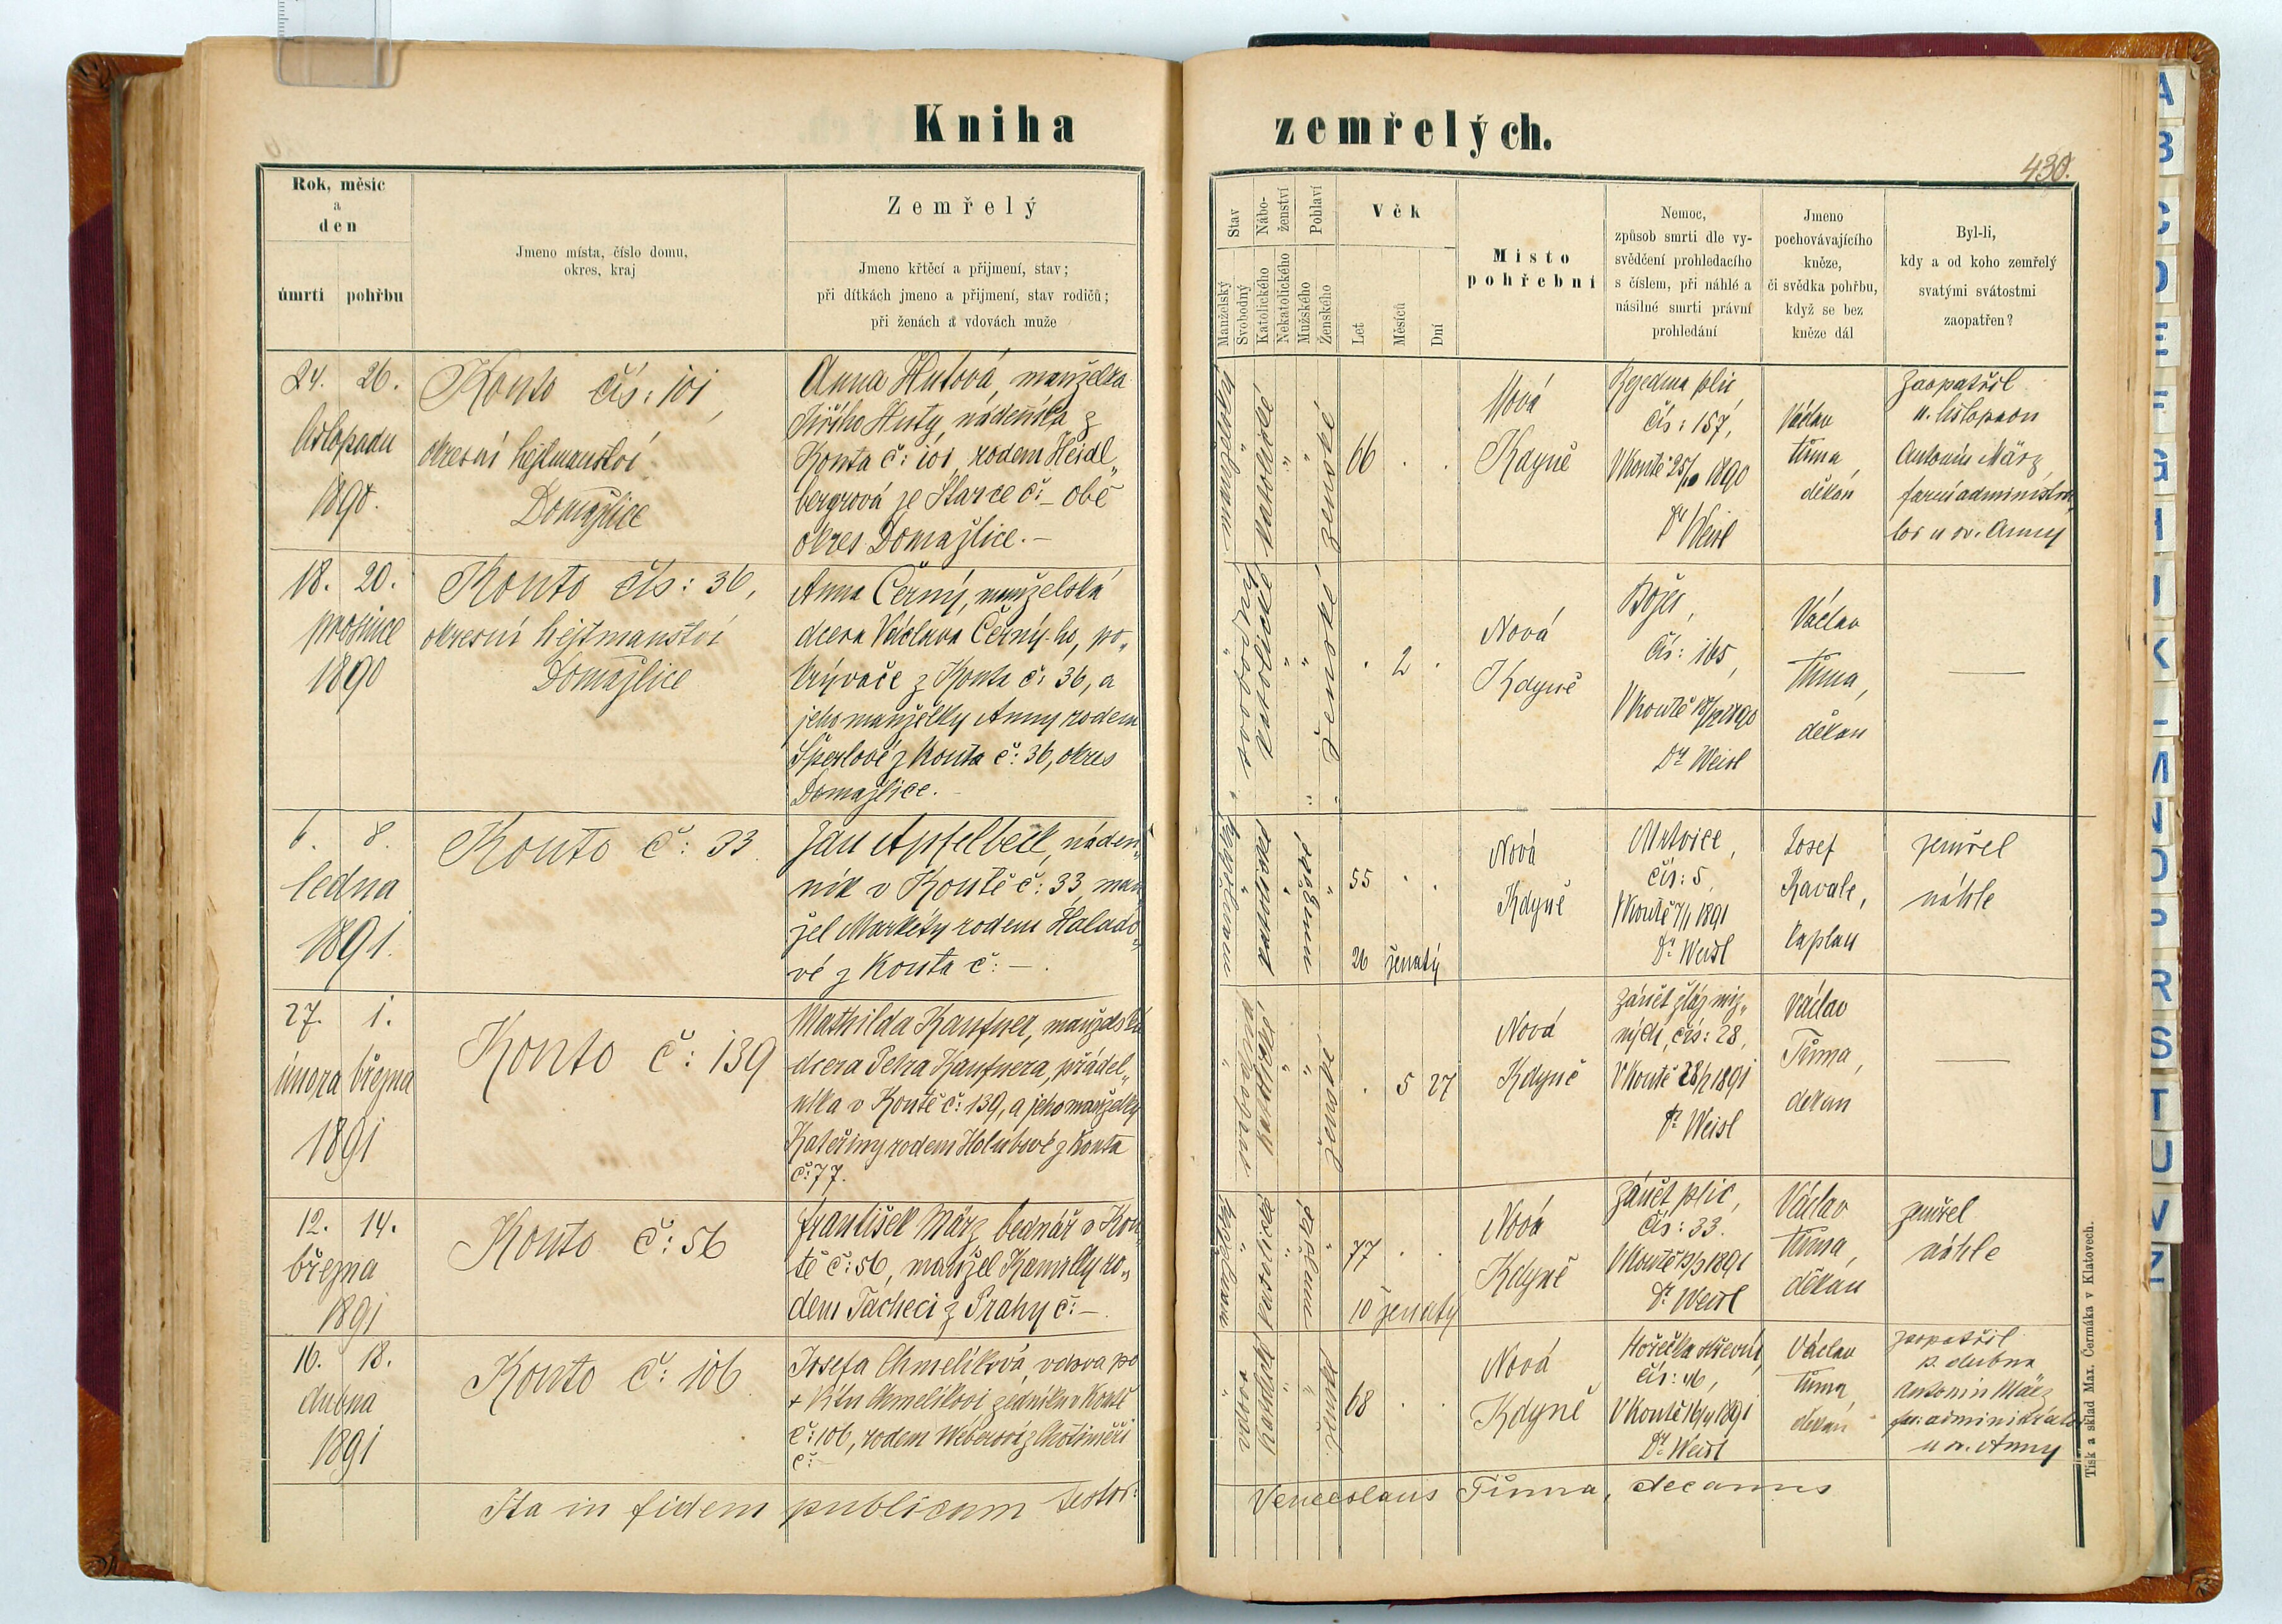 Kniha zemřelých.
430.
Rok, měsíc
a
den
úmrtí
pohřbu
Jmeno místa, číslo domu,
okres, kraj
Zemřelý
Jmeno křtěcí a přijmení, stav;
při dítkách jmeno a přijmení, stav rodičů;
při ženách a vdovách muže
Stav
Manželský
Svobodný
Nábo-
ženství
Katolického
Nekatolického
Pohlaví
Mužského
Ženského
Věk
Let
Měsíců
Dní
Místo
pohřební
Nemoc,
způsob smrti dle vy-
svědčení prohledacího
s číslem, při náhlé a
násilné smrti právní
prohledání
Jmeno
pochovávajícího
kněze,
či svědka pohřbu,
když se bez
kněze dál
Byl-li,
kdy a od koho zemřelý
svatými svátostmi
zaopatřen?
24. 26.
listopadu
1890.
Kouto čís: 101,
okresní hejtmanství
Domažlice
Anna Hutová, manželka
Jiřího Huty, nádeníka z
Kouta č: 101, rodem Heidl„
bergrová ze Starce č: – obě
okres Domažlice. –
katolické
ženské
66 . .
Nová
Kdyně
plic,
čís: 157,
V Koutě 25/11 1890
Dr Weisl
Václav
Tůma,
děkan
Zaopatřil
11. listopadu
Antonín März,
farní administra„
tor u sv. Anny
18. 20.
prosince
1890
Kouto čís: 36,
okresní hejtmanství
Domažlice
Anna Černý, manželská
dcera Václava Černý-ho, po„
krývače z Kouta č: 36, a
jeho manželky Anny rodem
Šperlové z Kouta č: 36, okres
Domažlice. –
svobodná
katolické
ženské
. 2 .
Nová
Kdyně
Božec,
čís: 165,
V Koutě 18/12 1890
Dr Weisl
Václav
Tůma,
děkan
—
6. 8.
ledna
1891.
Kouto č: 33.
Jan Apfelbeck, náden„
ník v Koutě č: 33, man„
žel Markéty rodem Halado„
vé z Kouta č: – .
katolické
mužské
55 . .
26 ženatý
Nová
Kdyně
Mrtvice,
čís: 5,
V Koutě 7/1 1891
Dr Weisl
Josef
Kavale,
kaplan
zemřel
náhle
27. 1.
února března
1891
Kouto č: 139
Mathilda Kaufner, manželská
dcera Petra Kaufnera, přádel„
níka v Koutě č: 139, a jeho manželky
Kateřiny rodem Holubové z Kouta
č: 77.
svobodná
katolické
ženské
. 5 27
Nová
Kdyně
zánět žláz miz„
ných, čís: 28,
V Koutě 28/2 1891
Dr Weisl
Václav
Tůma,
děkan
—
12. 14.
března
1891
Kouto č: 56
František März, bednář v Kou„
tě č: 56, manžel Kamilly ro„
dem Tacheci z Prahy č: – .
katolické
mužské
77 . .
10 ženatý
Nová
Kdyně
zánět plic,
čís: 33.
V Koutě 13/3 1891
Dr Weisl
Václav
Tůma,
děkan
zemřel
náhle
16. 18.
dubna
1891
Kouto č: 106
Josefa Chmelíková, vdova po
+ Vítu Chmelíkovi zedníku v Koutě
č: 106, rodem Weberová z Chotiměři
č: –
vdova
katolické
ženské
68 . .
Nová
Kdyně
Horečka střevní,
čís: 46,
V Koutě 16/4 1891
Dr Weisl
Václav
Tůma,
děkan
zaopatřil
dubna
Antonín März
far: administrator
u sv. Anny
Ita in fidem publicam testor: Venceslaus Tůma, decanus
Tisk a sklad Max. Čermáka v Klatovech.
A
B
C
D
E
F
G
I
K
M
O
R
S
T
U
V
Z